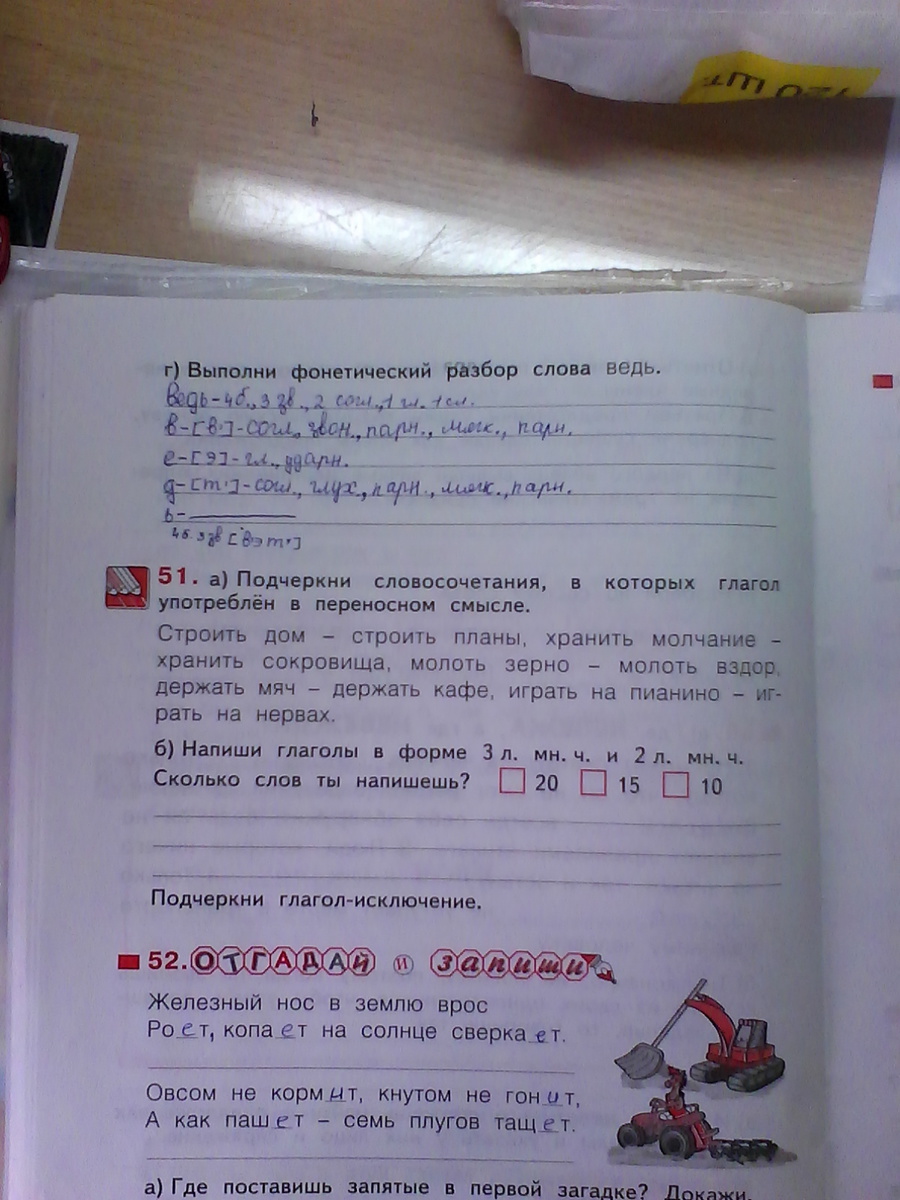 120 ШТ.
г) Выполни фонетический разбор слова ведь.
Ведь-4б., 3 зв., 2 согл., 1 гл. 1 сл.
в-[в']-согл., звон., парн., мягк., парн.
е-[э]-гл., ударн.
д-[т']-согл., глух., парн., мягк., парн.
ь-
4б. 3 зв [в'эт']
51. а) Подчеркни словосочетания, в которых глагол
употреблён в переносном смысле.
Строить дом – строить планы, хранить молчание –
хранить сокровища, молоть зерно – молоть вздор,
держать мяч – держать кафе, играть на пианино – иг-
рать на нервах.
б) Напиши глаголы в форме 3 л. мн. ч. и 2 л. мн. ч.
Сколько слов ты напишешь? 20 15 10
Подчеркни глагол-исключение.
52. ОТГАДАЙ и запиши
Железный нос в землю врос
Роет, копает на солнце сверкает.
Овсом не кормит, кнутом не гонит,
А как пашет – семь плугов тащет.
а) Где поставишь запятые в первой загадке? Докажи.